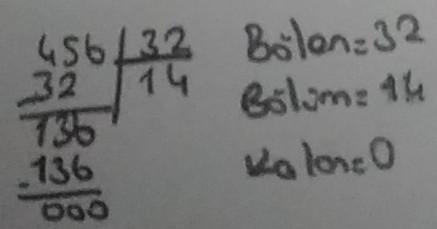 456 | 32
-32 | 14
136
-136
000
Bölen=32
Bölüm=14
Kalan=0